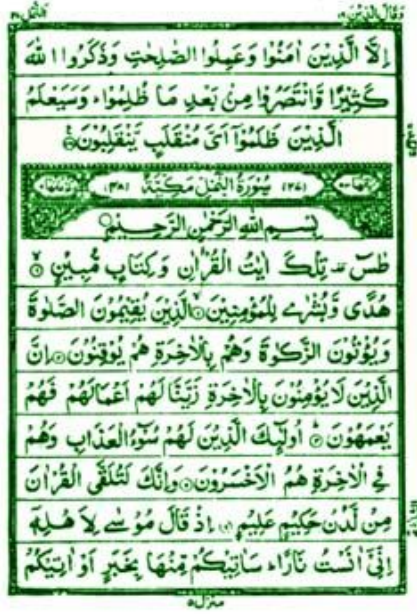 وقال الذين ١٩
النمل ٢٧
اِلَّا الَّذِیْنَ اٰمَنُوْا وَعَمِلُوا الصّٰلِحٰتِ وَذَكَرُوا اللّٰهَ
كَثِیْرًا وَّانْتَصَرُوْا مِنْۢ بَعْدِ مَا ظُلِمُوْا ؕ وَسَیَعْلَمُ
الَّذِیْنَ ظَلَمُوْۤا اَیَّ مُنْقَلَبٍ یَّنْقَلِبُوْنَ
(٢٧) سُوْرَةُ النَّمْلِ مَكِّیَّةٌ (٤٨)
بِسْمِ اللّٰهِ الرَّحْمٰنِ الرَّحِیْمِ
طٰسٓ تِلْكَ اٰیٰتُ الْقُرْاٰنِ وَكِتَابٍ مُّبِیْنٍ
هُدًی وَّبُشْرٰی لِلْمُؤْمِنِیْنَ الَّذِیْنَ یُقِیْمُوْنَ الصَّلٰوةَ
وَیُؤْتُوْنَ الزَّكٰوةَ وَهُمْ بِالْاٰخِرَةِ هُمْ یُوْقِنُوْنَ اِنَّ
الَّذِیْنَ لَا یُؤْمِنُوْنَ بِالْاٰخِرَةِ زَیَّنَّا لَهُمْ اَعْمَالَهُمْ فَهُمْ
یَعْمَهُوْنَ اُولٰٓىِٕكَ الَّذِیْنَ لَهُمْ سُوْٓءُ الْعَذَابِ وَهُمْ
فِی الْاٰخِرَةِ هُمُ الْاَخْسَرُوْنَ وَاِنَّكَ لَتُلَقَّی الْقُرْاٰنَ
مِنْ لَّدُنْ حَكِیْمٍ عَلِیْمٍ اِذْ قَالَ مُوْسٰی لِاَهْلِهٖۤ
اِنِّیْۤ اٰنَسْتُ نَارًا ؕ سَاٰتِیْكُمْ مِّنْهَا بِخَبَرٍ اَوْ اٰتِیْكُمْ
منزل ٥